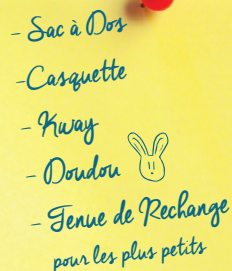 - Sac à Dos
-Casquette
- Kway
- Doudou
- Tenue de Rechange
pour les plus petits